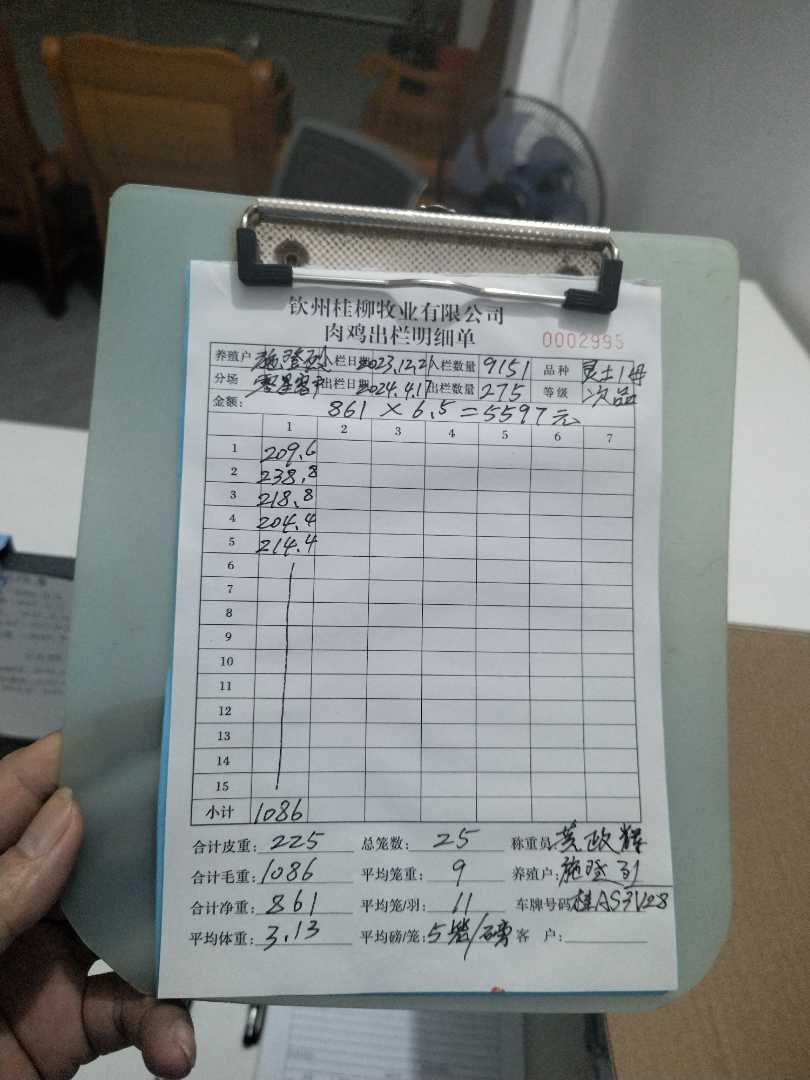 钦州桂柳牧业有限公司
肉鸡出栏明细单 0002995
养殖户 施登 入栏日期 2023.12.21 入栏数量 9151 品种 灵土1号
分场 零星客户 出栏日期 2024.4.17 出栏数量 275 等级 次品
金额: 861 × 6.5=5597元
1 2 3 4 5 6 7
1 209.6
2 238.8
3 218.8
4 204.4
5 214.4
6
7
8
9
10
11
12
13
14
15
小计 1086
合计皮重: 225 总笼数: 25 称重员 黄政辉
合计毛重: 1086 平均笼重: 9 养殖户: 施登
合计净重: 861 平均笼/羽: 11 车牌号码 桂AS3V28
平均体重: 3.13 平均磅/笼: 5笼/磅 客 户: